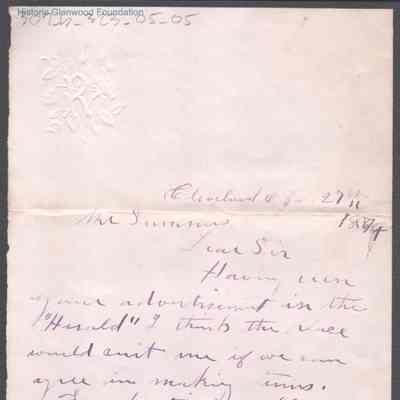 Historic Glenwood Foundation
05-05
Cleveland O 27th
1874
Mr Simmons
Dear Sir
Having seen
your advertisement in the
"Herald" I think the place
would suit me if we can
agree in making terms.